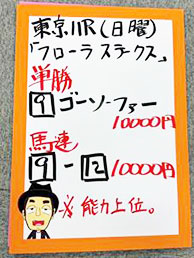 東京11R(日曜)
「フローラステークス」
単勝
9 ゴーソーファー
10000円
馬連
9-12 10000円
※能力上位。